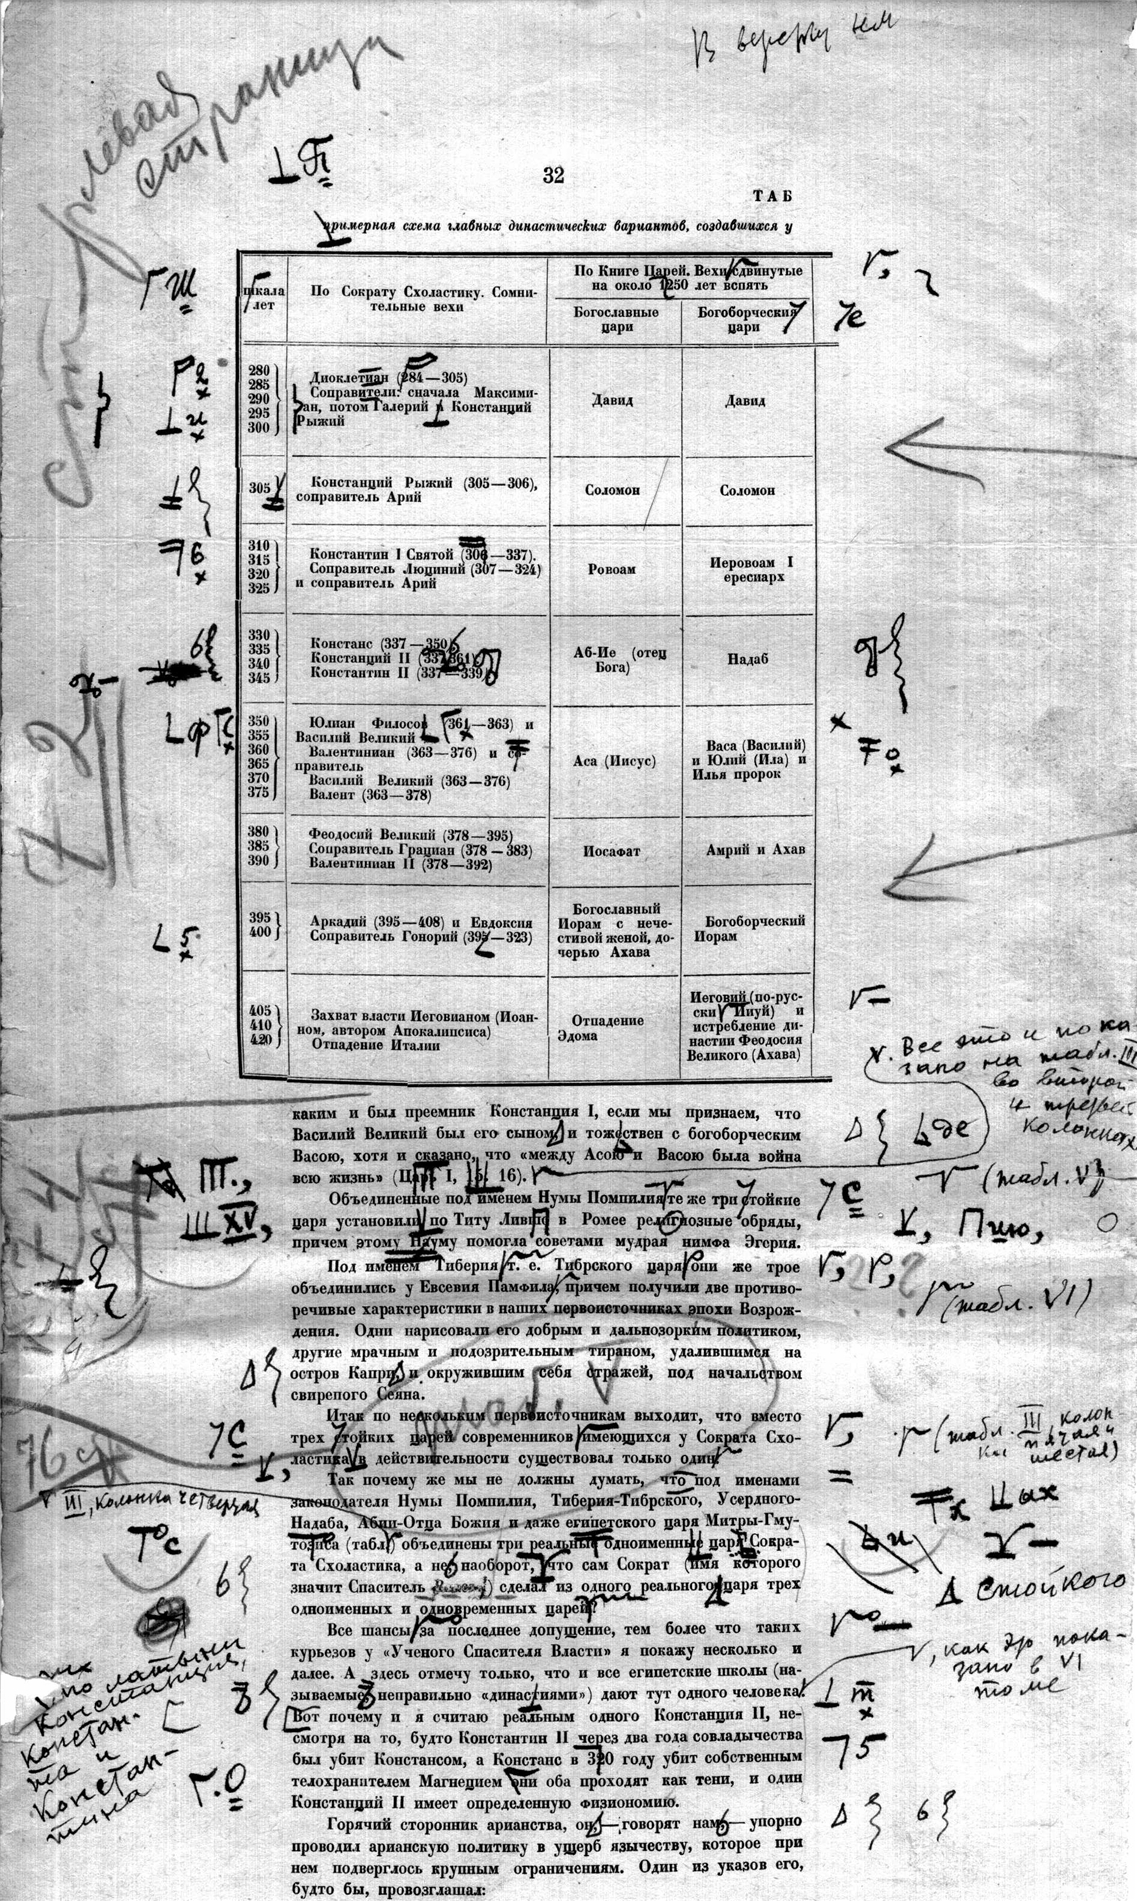 В верху нм
левая
страница
32
ТАБ
примерная схема главных династических вариантов, создавшихся у
шкала
лет
По Сократу Схоластику. Сомни-
тельные вехи
По Книге Царей. Вехи сдвинутые
на около 1250 лет вспять
Богославные
цари
Богоборческия
цари
280
285
290
295
300
Диоклетиан (284—305)
Соправители: сначала Максими-
ан, потом Галерий и Констанций
Рыжий
Давид
Давид
305
Констанций Рыжий (305—306),
соправитель Арий
Соломон
Соломон
310
315
320
325
Константин I Святой (306—337).
Соправитель Люциний (307—324)
и соправитель Арий
Ровоам
Иеровоам I
ересиарх
330
335
340
345
Констанс (337—350)
Констанций II (337 361)
Константин II (337—339)
Аб-Ие (отец
Бога)
Надаб
350
355
360
365
370
375
Юлиан Филосов (361—363) и
Василий Великий
Валентиниан (363—376) и со-
правитель
Василий Великий (363—376)
Валент (363—378)
Аса (Иисус)
Васа (Василий)
и Юлий (Ила) и
Илья пророк
380
385
390
Феодосий Великий (378—395)
Соправитель Грациан (378—383)
Валентиниан II (378—392)
Иосафат
Амрий и Ахав
395
400
Аркадий (395—408) и Евдоксия
Соправитель Гонорий (395—323)
Богославный
Иорам с нече-
стивой женой, до-
черью Ахава
Богоборческий
Иорам
405
410
420
Захват власти Иеговианом (Иоан-
ном, автором Апокалипсиса)
Отпадение Италии
Отпадение
Эдома
Иеговий (по-рус-
ски Ииуй) и
истребление ди-
настии Феодосия
Великого (Ахава)
Все это и пока-
зано на табл. III
во второй
и третьей
колонках
каким и был преемник Констанция I, если мы признаем, что
Василий Великий был его сыном, и тожествен с богоборческим
Васою, хотя и сказано, что «между Асою и Васою была война
всю жизнь» (Цар. I, 15. 16).
(табл. V)
Объединенные под именем Нумы Помпилия те же три стойкие
царя установили по Титу Ливию в Ромее религиозные обряды,
причем этому Науму помогла советами мудрая нимфа Эгерия.
Под именем Тиберия т. е. Тибрского царя они же трое
объединились у Евсевия Памфила, причем получили две противо-
речивые характеристики в наших первоисточниках эпохи Возрож-
дения. Одни нарисовали его добрым и дальнозорким политиком,
другие мрачным и подозрительным тираном, удалившимся на
остров Капри, и окружившим себя стражей, под начальством
свирепого Сеяна.
(табл. VI)
табл. V
Итак по нескольким первоисточникам выходит, что вместо
трех стойких царей современников имеющихся у Сократа Схо-
ластика в действительности существовал только один.
(табл. III, колон
ки пятая и
шестая)
III, колонка четвертая
Так почему же мы не должны думать, что под именами
законодателя Нумы Помпилия, Тиберия-Тибрского, Усердного-
Надаба, Абии-Отца Божия и даже египетского царя Митры-Гму-
тозиса (табл.) объединены три реальные одноименные царя Сокра-
та Схоластика, а не наоборот, что сам Сократ (имя которого
значит Спаситель) сделал из одного реального царя трех
одноименных и одновременных царей?
стойкого
Все шансы за последнее допущение, тем более что таких
курьезов у «Ученого Спасителя Власти» я покажу несколько и
далее. А здесь отмечу только, что и все египетские школы (на-
зываемые неправильно «династиями») дают тут одного человека.
Вот почему и я считаю реальным одного Констанция II, не-
смотря на то, будто Константин II через два года совладычества
был убит Констансом, а Констанс в 320 году убит собственным
телохранителем Магнецием они оба проходят как тени, и один
Констанций II имеет определенную физиономию.
, как это пока-
зано в VI
томе
их
по латыни
Констанция,
Констан-
та и
Констан-
тина
Горячий сторонник арианства, он,—говорят нам,— упорно
проводил арианскую политику в ущерб язычеству, которое при
нем подверглось крупным ограничениям. Один из указов его,
будто бы, провозглашал: